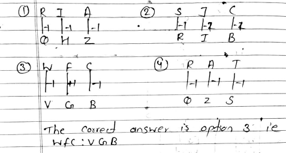 ① R I A ② S J C
-1 -1 -1 -1 -1 -1
Q H Z R I B
③ W F C ④ R A T
-1 +1 -1 -1 -1 -1
V G B Q Z S
The correct answer is option 3 ie
WFC : VGB